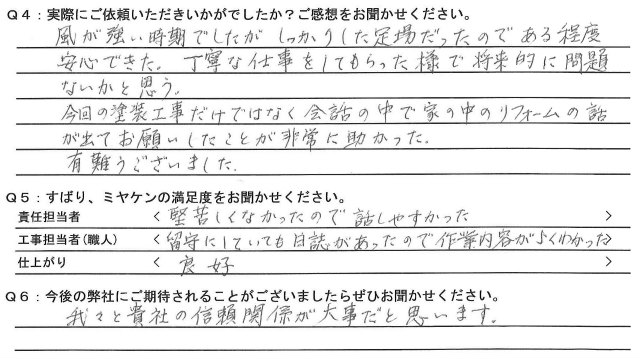 Q4：実際にご依頼いただきいかがでしたか？ご感想をお聞かせください。
風が強い時期でしたが しっかりした足場だったのである程度
安心できた。丁寧な仕事をしてもらった様で将来的に問題
ないかと思う。
今回の塗装工事だけではなく会話の中で家の中のリフォームの話
が出てお願いしたことが非常に助かった。
有難うございました。
Q5：ずばり、ミヤケンの満足度をお聞かせください。
責任担当者 < 堅苦しくなかったので話しやすかった >
工事担当者(職人) < 留守にしていても日誌があったので作業内容がよくわかった >
仕上がり < 良好 >
Q6：今後の弊社にご期待されることがございましたらぜひお聞かせください。
我々と貴社の信頼関係が大事だと思います。